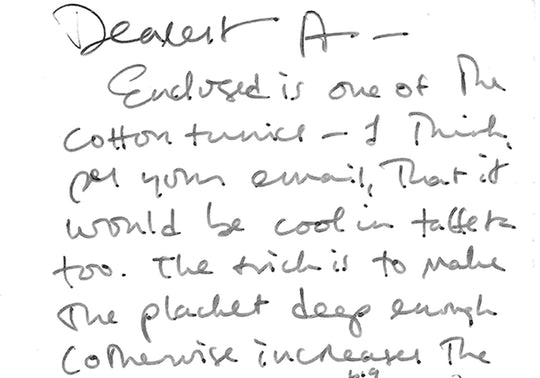 Dearest A —
Enclosed is one of the
cotton tunics — I think,
per your email, that it
would be cool in taffeta
too. The trick is to make
the placket deep enough
(otherwise increases the
big